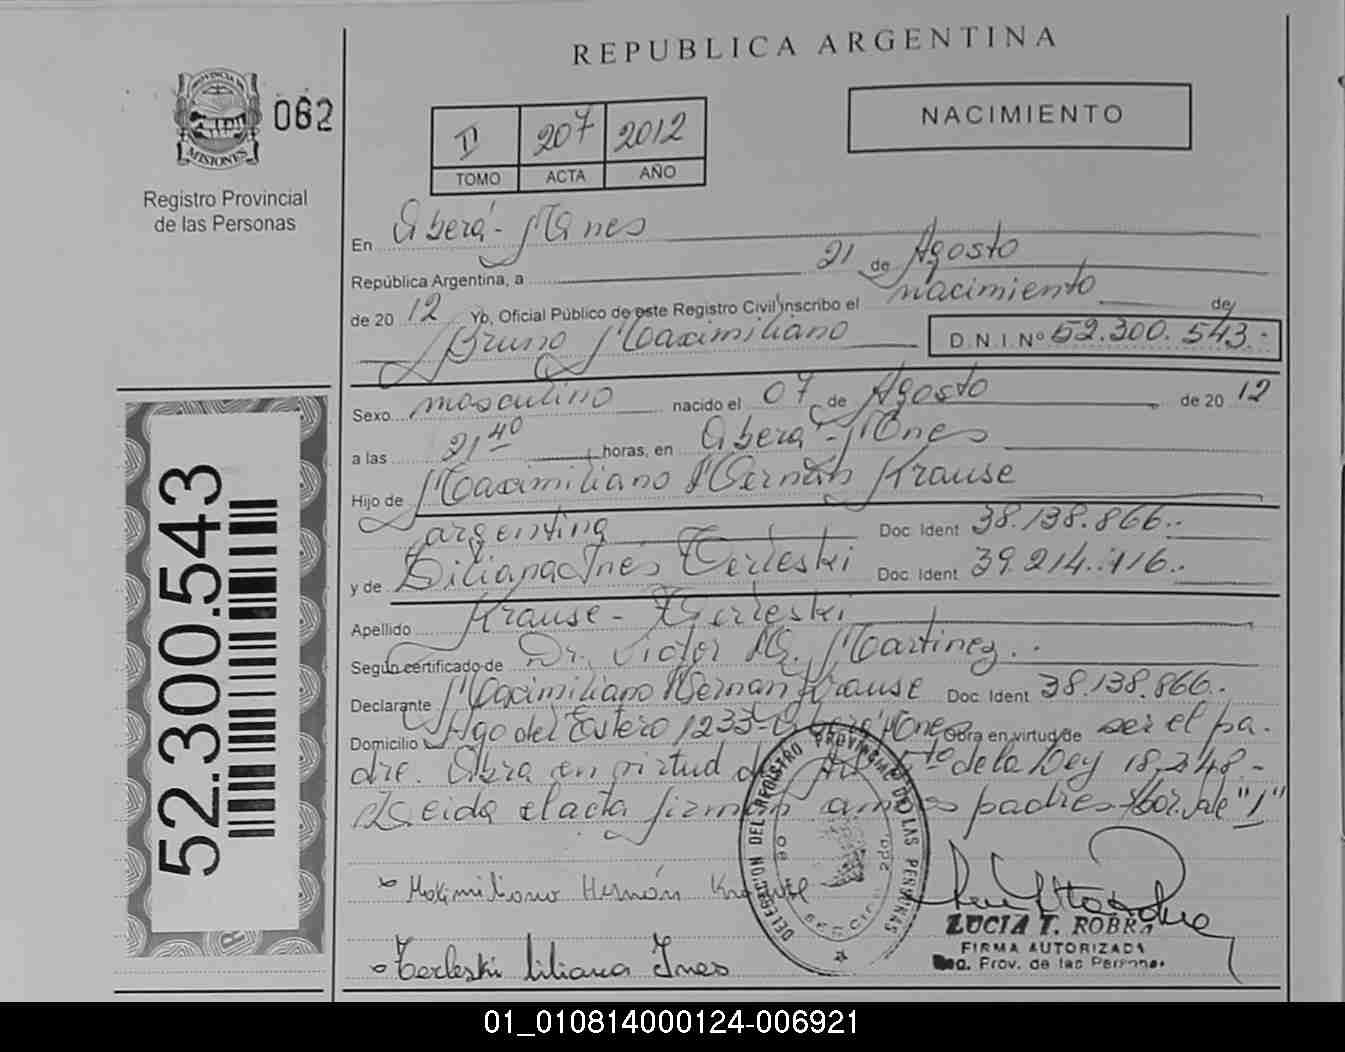 REPUBLICA ARGENTINA
PROVINCIA DE
MISIONES
062
Registro Provincial
de las Personas
II 207 2012
TOMO ACTA AÑO
NACIMIENTO
En Oberá - Mnes
República Argentina, a 21 de Agosto
de 20 12 Yo, Oficial Público de este Registro Civil inscribo el nacimiento de
Bruno Maximiliano D.N.I.Nº 52.300.543.-
Sexo masculino nacido el 07 de Agosto de 20 12
a las 21 40 horas, en Oberá - Mnes
Hijo de Maximiliano Hernán Krause
argentina Doc. Ident 38.138.866.-
y de Liliana Inés Terleski Doc. Ident 39.214.116.-
Apellido Krause - Terleski
Según certificado de Dr. Victor M. Martinez.-
Declarante Maximiliano Hernan Krause Doc. Ident 38.138.866.-
Domicilio Sgo del Estero 1233 - Oberá Mnes Obra en virtud de ser el pa-
dre. Obra en virtud del Art. 5to de la Ley 18.248.-
Leida el acta firman ambos padres. Vale "1"
Maximiliano Hernán Krause
Terleski Liliana Ines
DELEGACION DEL REGISTRO PROVINCIAL DE LAS PERSONAS
LUCIA T. ROBRA
FIRMA AUTORIZADA
Reg. Prov. de las Personas
52.300.543
01_010814000124-006921